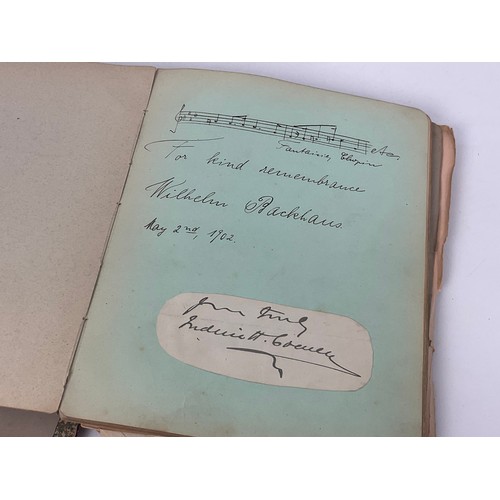 etc.
Fantaisie, Chopin
For kind remembrance
Wilhelm Backhaus.
May 2nd, 1902.
Yours truly
Frederic H. Cowen